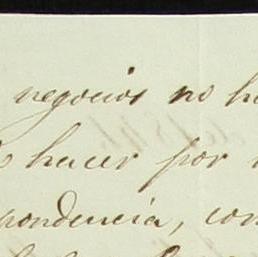 negocios no ha
hacer por
pondencia, con